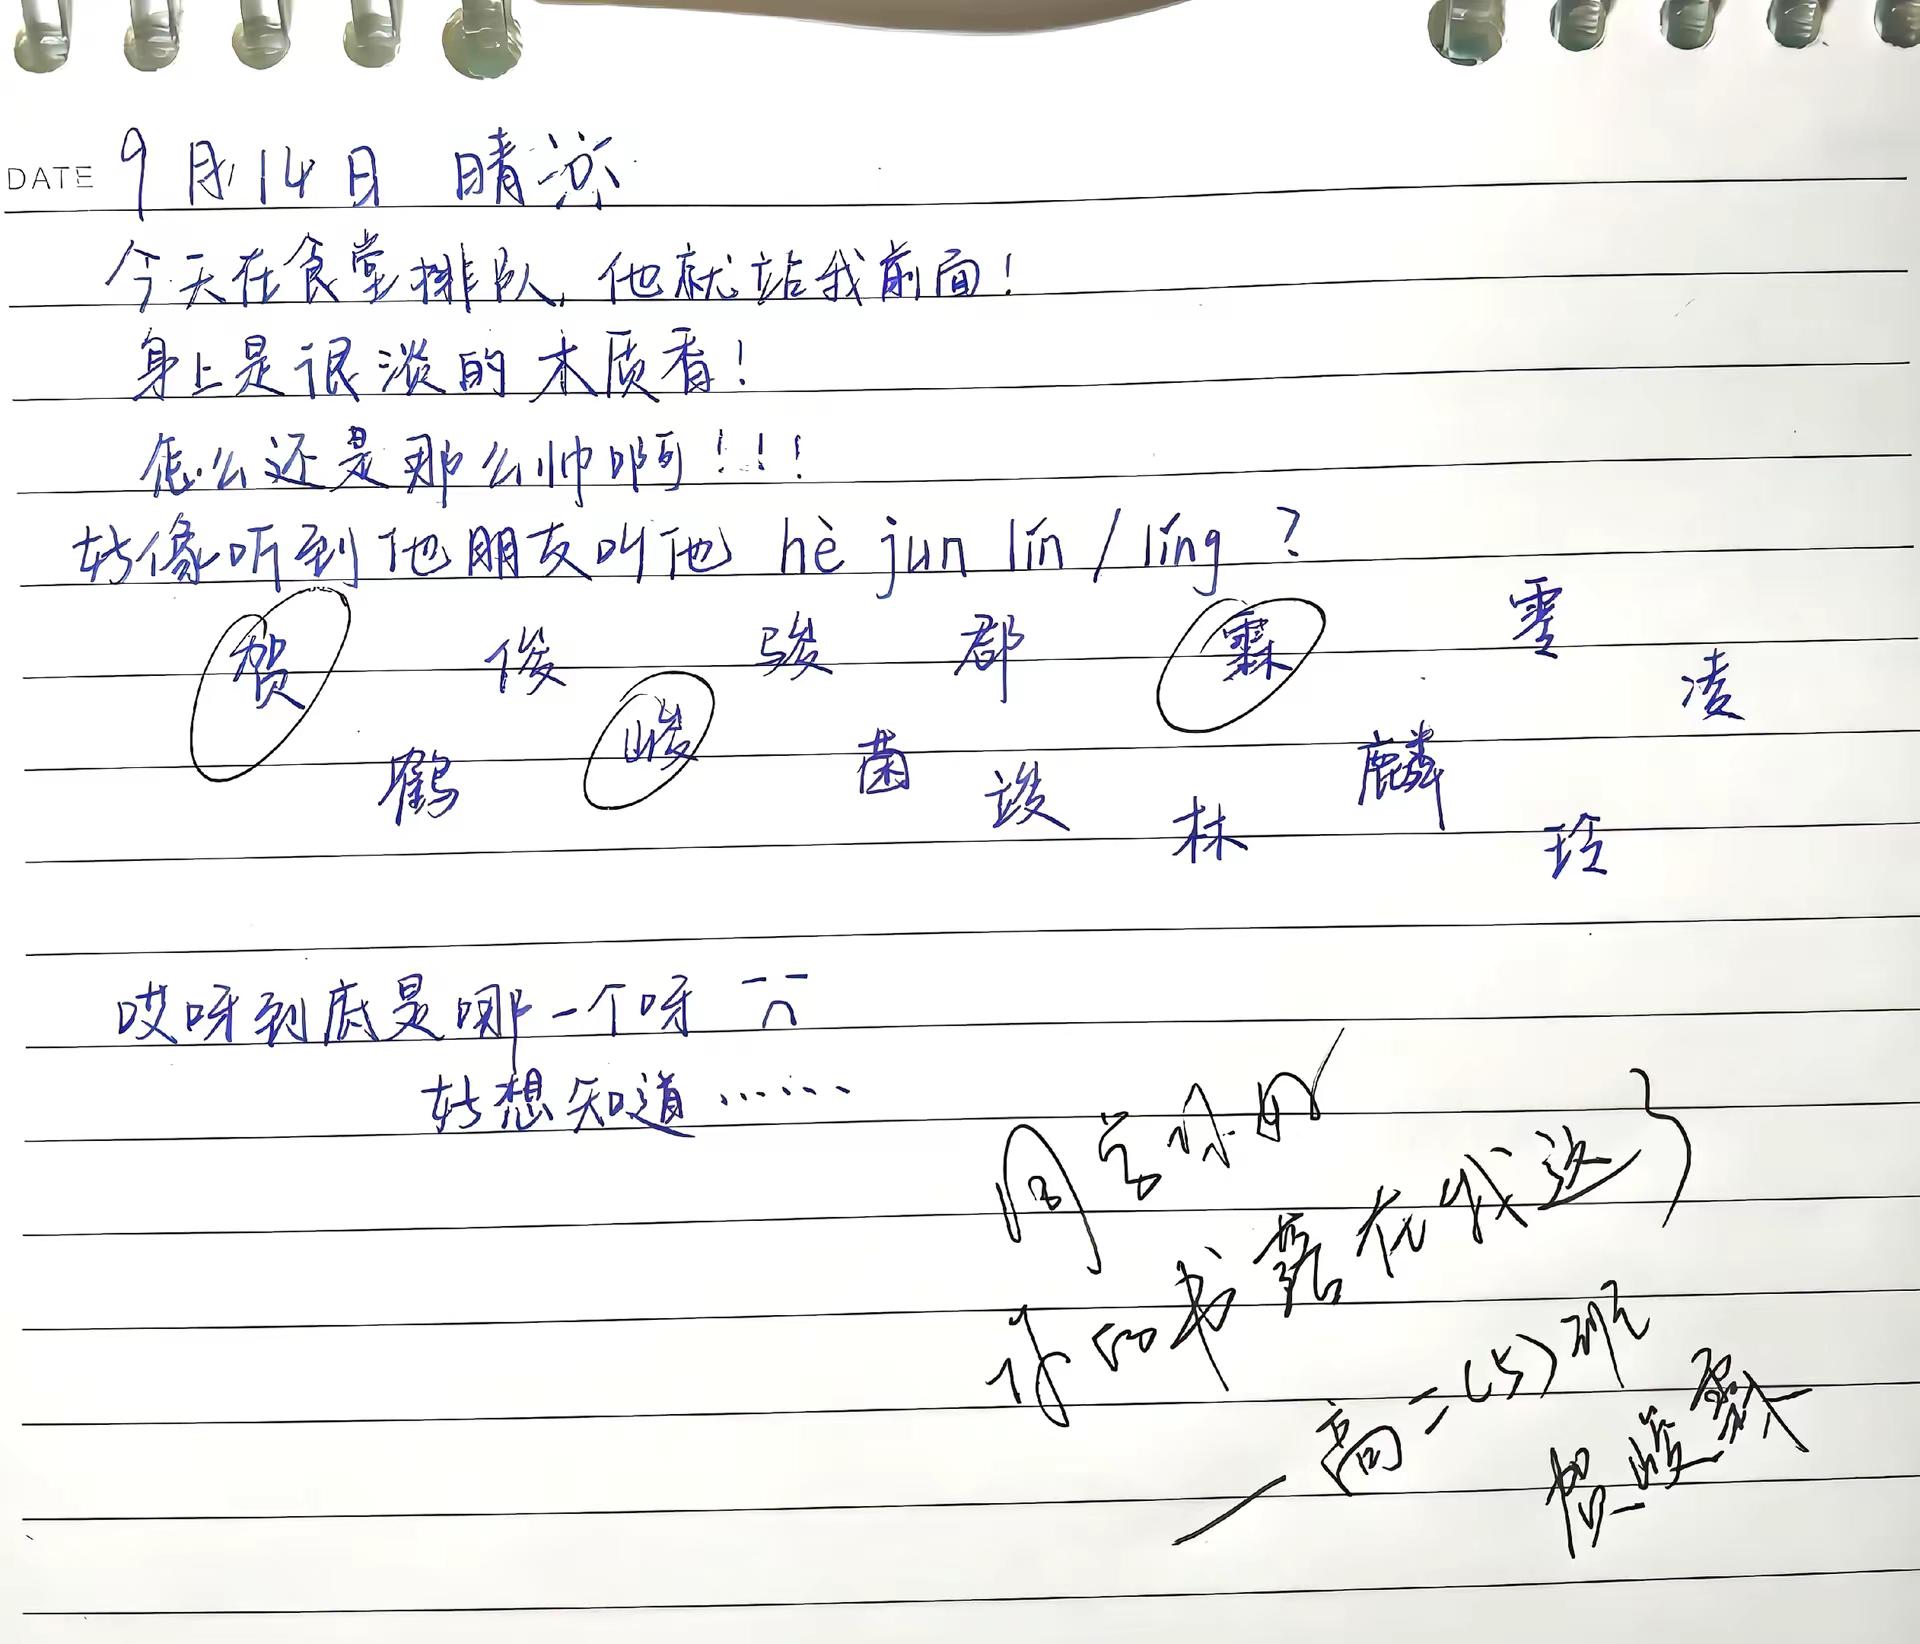 DATE 9月14日 晴
今天在食堂排队,他就站我前面!
身上是很淡的木质香!
怎么还是那么帅啊!!!
好像听到他朋友叫他 hè jun lín / líng ?
贺 俊 骏 郡 霖 零
鹤 峻 菌 竣 林 麟 玲 凌
哎呀到底是哪一个呀
好想知道……
同学你的
作业书落在我这了
高二(5)班
贺峻霖